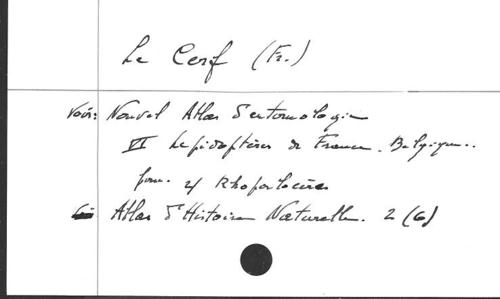 Le Cerf (Fr.)
Voir: Nouvel Atlas d'entomologie
VI Lépidoptères de France. Belgique..
2/ Rhopalocères
Atlas d'Histoire Naturelle. 2 (6)